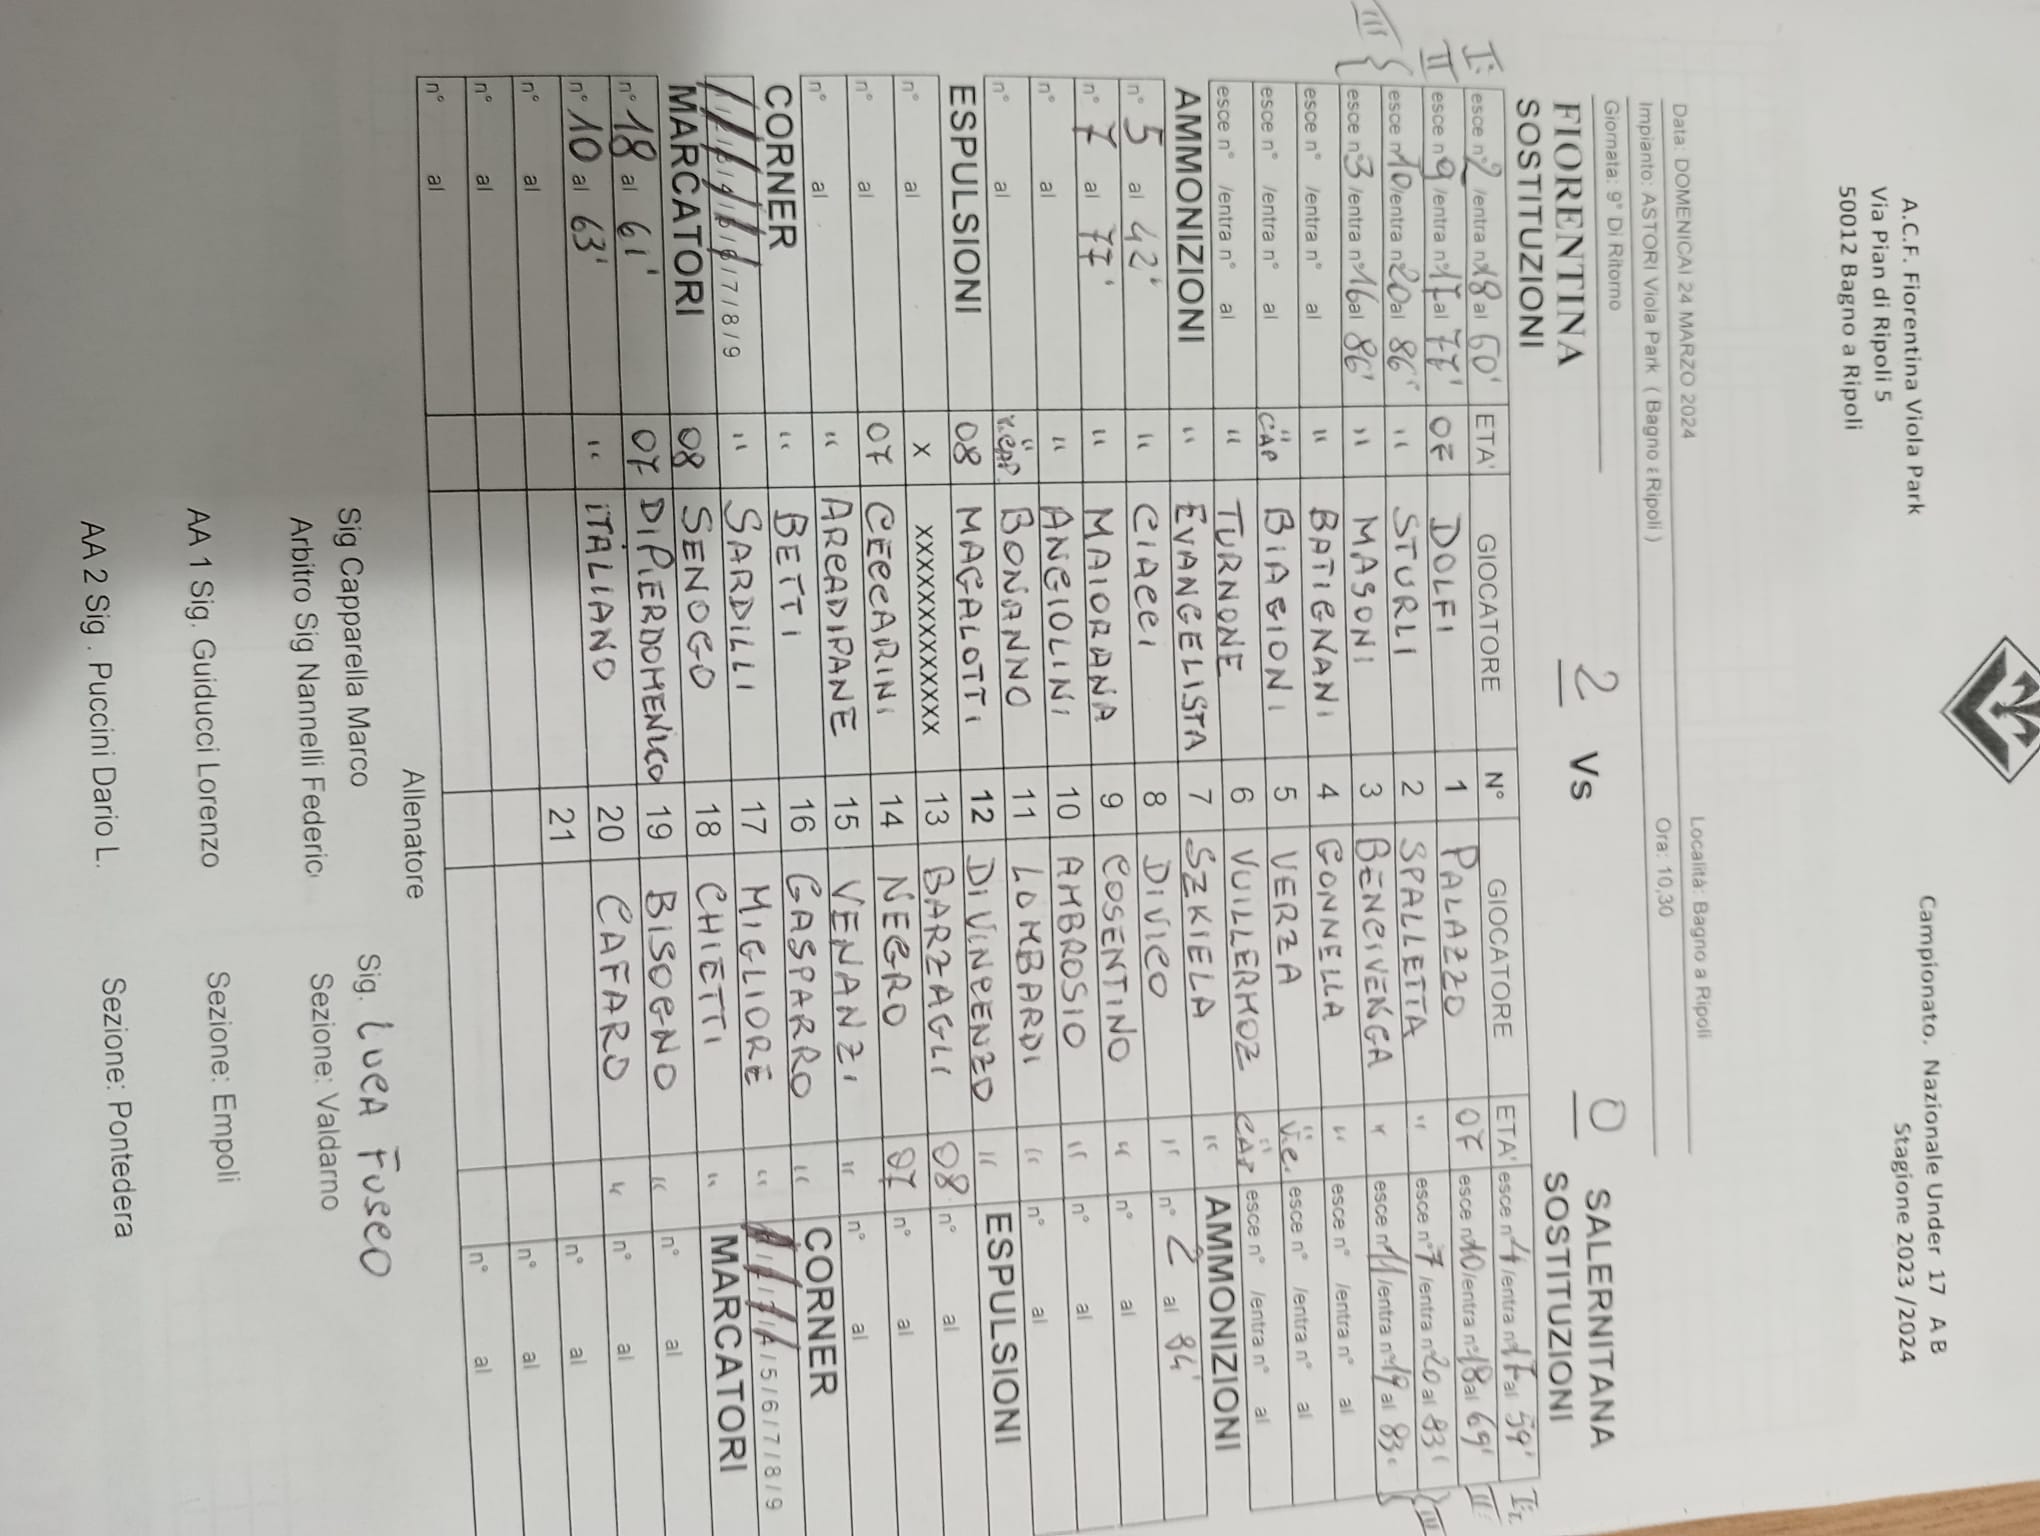 A.C.F. Fiorentina Viola Park
Via Pian di Ripoli 5
50012 Bagno a Ripoli
Campionato. Nazionale Under 17 A B
Stagione 2023 /2024
Data: DOMENICAI 24 MARZO 2024
Località: Bagno a Ripoli
Impianto: ASTORI Viola Park ( Bagno ε Ripoli )
Ora: 10,30
Giornata: 9° Di Ritorno
FIORENTINA 2 Vs 0 SALERNITANA
SOSTITUZIONI SOSTITUZIONI
ETA' GIOCATORE N° GIOCATORE ETA'
I: esce n° 2 /entra n° 18 al 60' 07 DOLFI 1 PALAZZO 07 esce n° 4 /entra n° 17 al 59' I:
II esce n° 9 /entra n° 17 al 77' " STURLI 2 SPALLETTA " esce n° 10 /entra n° 18 al 69' II:
III { esce n° 10 /entra n° 20 al 86' " MASONI 3 BENCIVENGA " esce n° 7 /entra n° 20 al 83' } III
esce n° 3 /entra n° 16 al 86' " BATIGNANI 4 GONNELLA " esce n° 11 /entra n° 19 al 83'
esce n° /entra n° al " CAP BIAGIONI 5 VERZA " V.C. esce n° /entra n° al
esce n° /entra n° al " TURNONE 6 VUILLERMOZ " CAP esce n° /entra n° al
esce n° /entra n° al " EVANGELISTA 7 SZKIELA " esce n° /entra n° al
AMMONIZIONI " CIACCI 8 DI VICO " AMMONIZIONI
n° 5 al 42' " MAIORANA 9 COSENTINO " n° 2 al 84'
n° 7 al 77' " ANGIOLINI 10 AMBROSIO " n° al
n° al " V.CAP. BONANNO 11 LOMBARDI " n° al
n° al 08 MAGALOTTI 12 DI VINCENZO " n° al
ESPULSIONI x xxxxxxxxxxxxx 13 BARZAGLI 08 ESPULSIONI
n° al 07 CECCARINI 14 NEGRO 07 n° al
n° al " ARCADIPANE 15 VENANZI " n° al
n° al " BETTI 16 GASPARRO " n° al
CORNER " SARDILLI 17 MIGLIORE " CORNER
/ 7 / 8 / 9 08 SENOGO 18 CHIETTI " / 5 / 6 / 7 / 8 / 9
MARCATORI 07 DI PIERDOMENICO 19 BISOGNO " MARCATORI
n° 18 al 61' " ITALIANO 20 CAFARO " n° al
n° 10 al 63' 21 n° al
n° al n° al
n° al n° al
n° al n° al
Allenatore
Sig Capparella Marco Sig. LUCA FUSCO
Arbitro Sig Nannelli Federic Sezione: Valdarno
AA 1 Sig. Guiducci Lorenzo Sezione: Empoli
AA 2 Sig . Puccini Dario L. Sezione: Pontedera